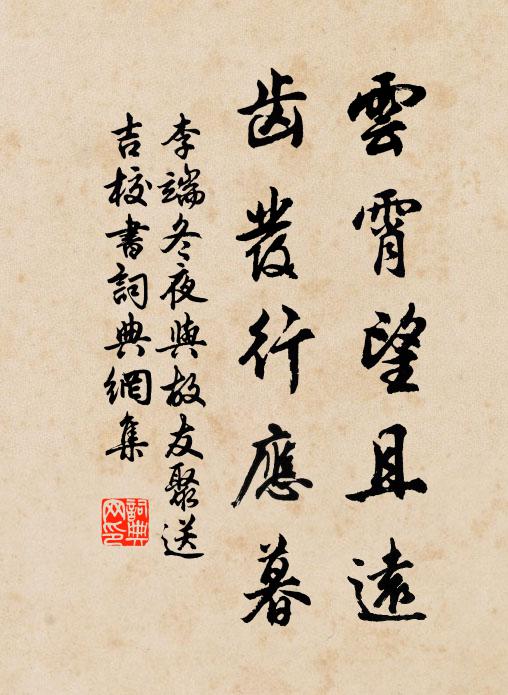 雲霄望且遠
齒發行應暮
李端冬夜與故友聚送
吉校書詞典網集
詞典网印